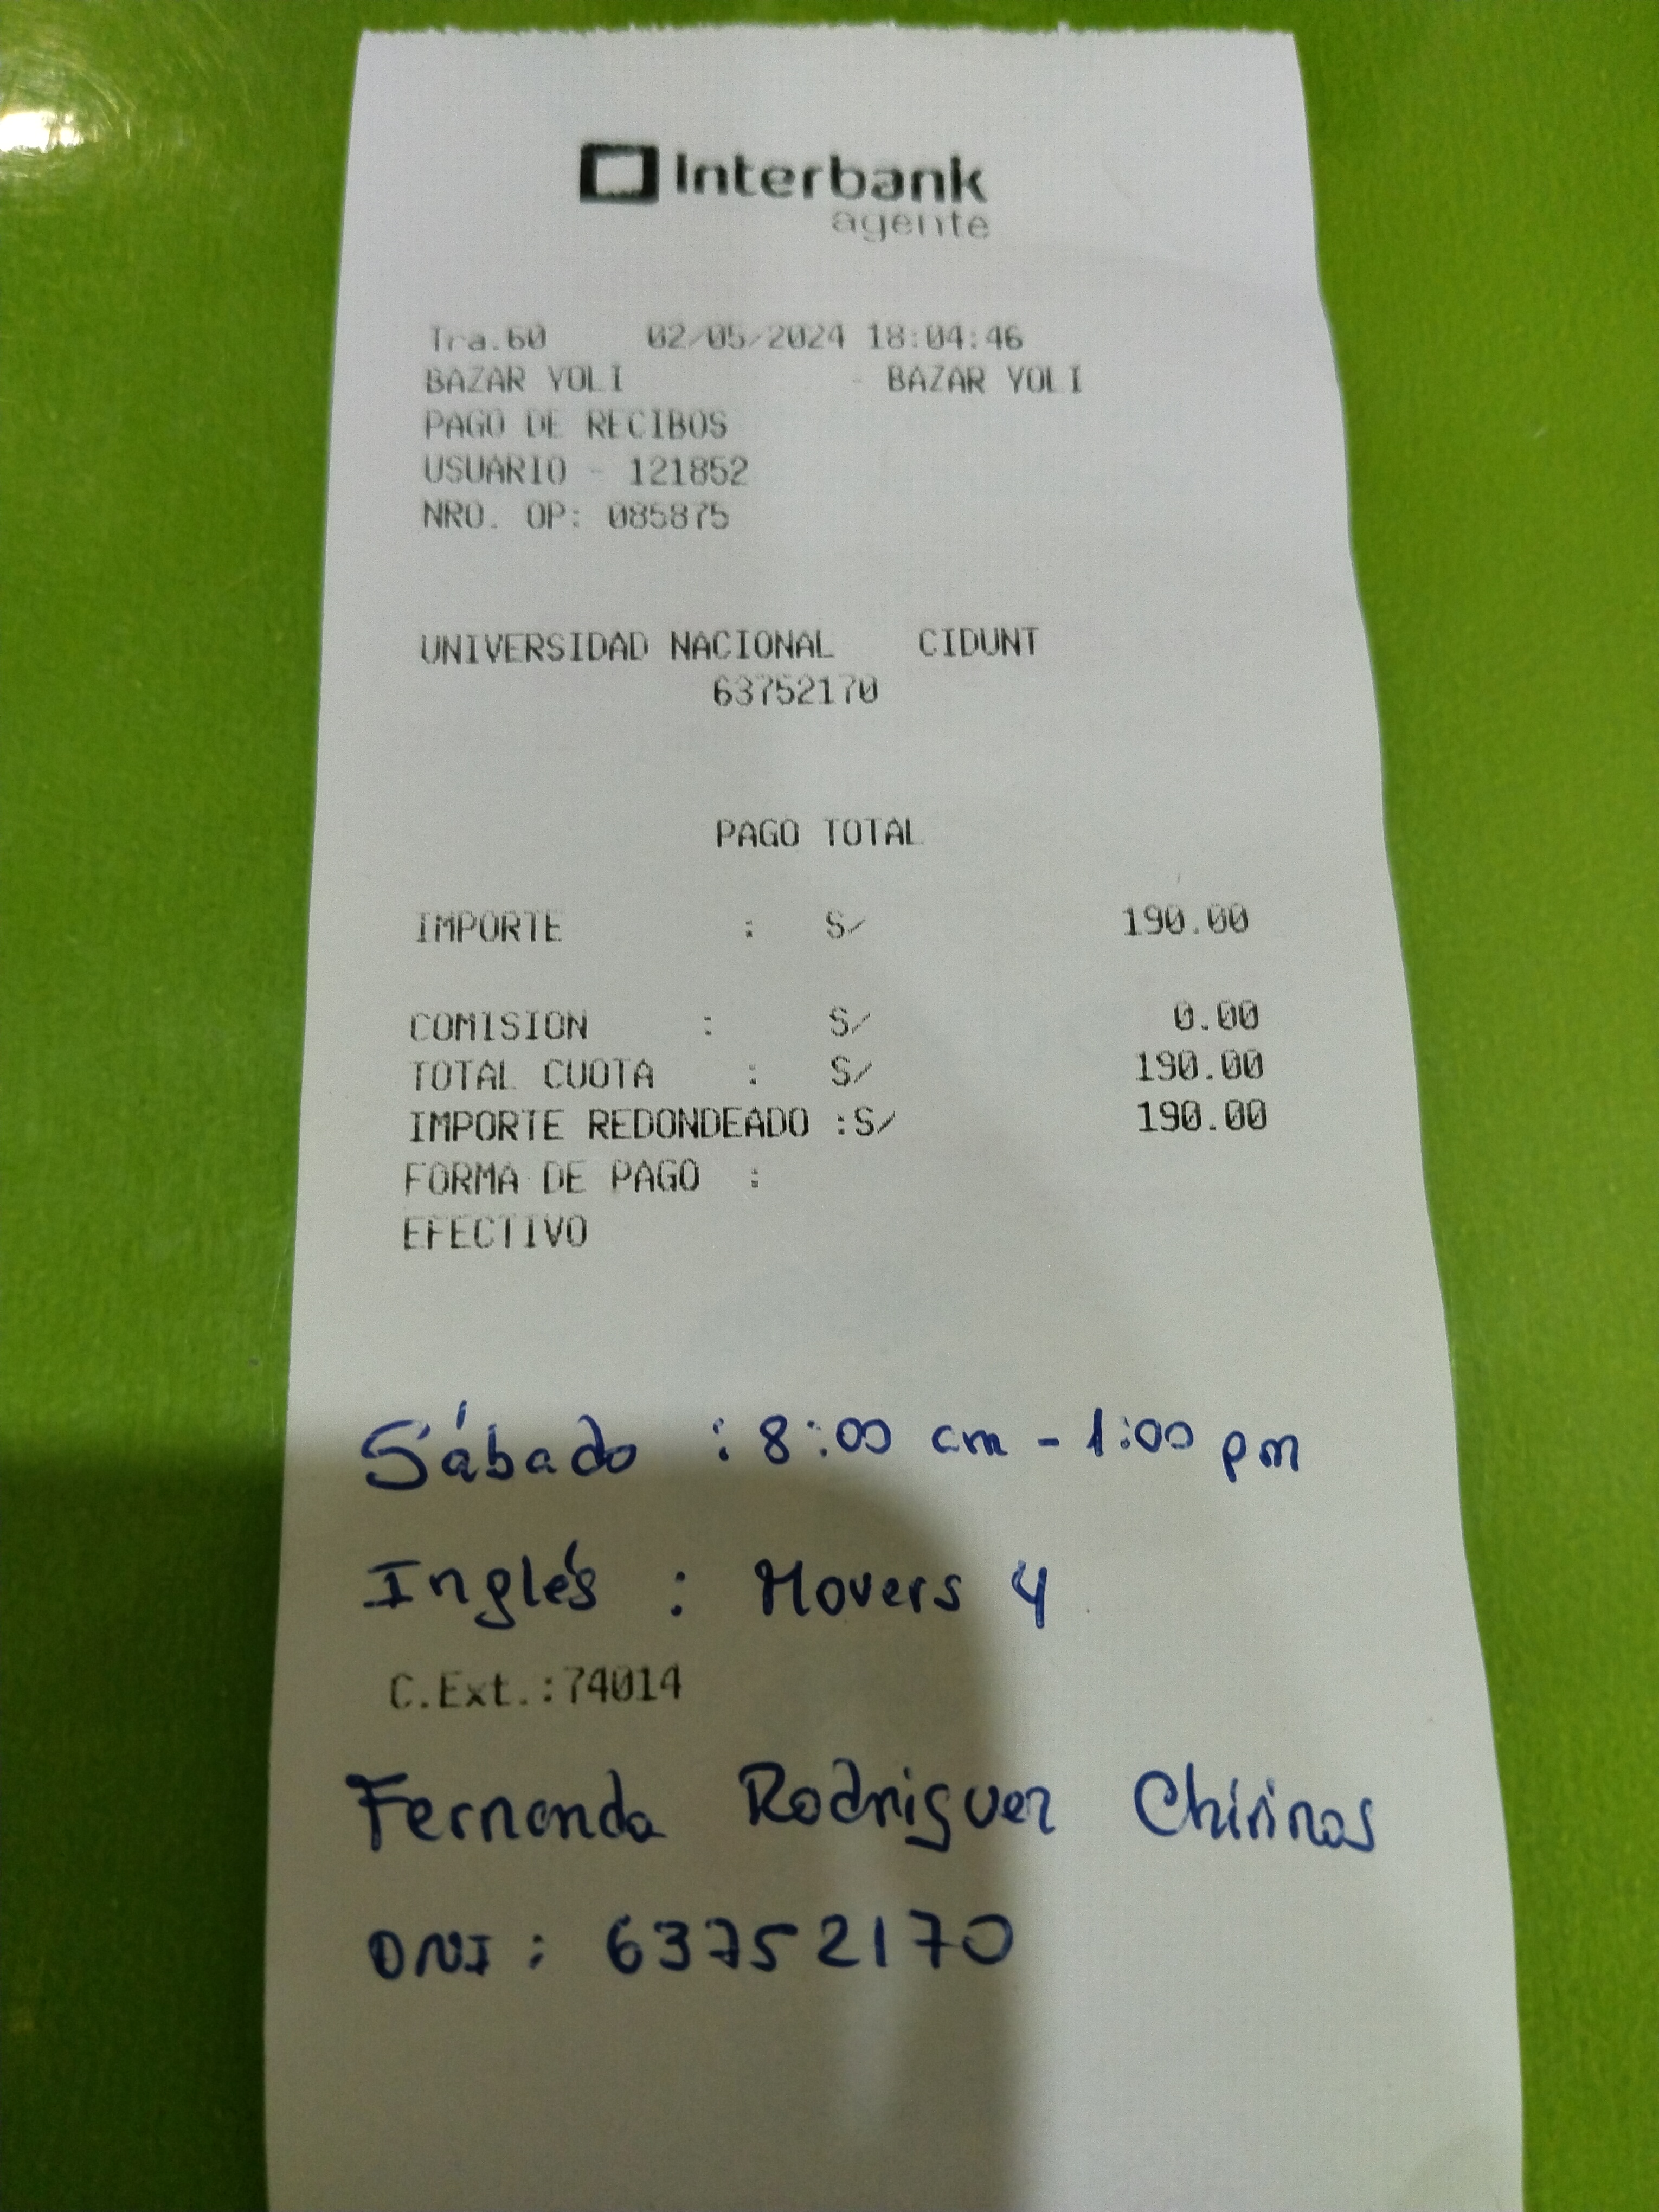 Interbank
agente
Tra.60 02/05/2024 18:04:46
BAZAR YOLI - BAZAR YOLI
PAGO DE RECIBOS
USUARIO - 121852
NRO. OP: 085875
UNIVERSIDAD NACIONAL CIDUNT
63752170
PAGO TOTAL
IMPORTE : S/ 190.00
COMISION : S/ 0.00
TOTAL CUOTA : S/ 190.00
IMPORTE REDONDEADO :S/ 190.00
FORMA DE PAGO :
EFECTIVO
Sábado : 8:00 am - 1:00 pm
Inglés : Movers 4
C.Ext.:74014
Fernanda Rodriguez Chirinos
DNI : 63752170